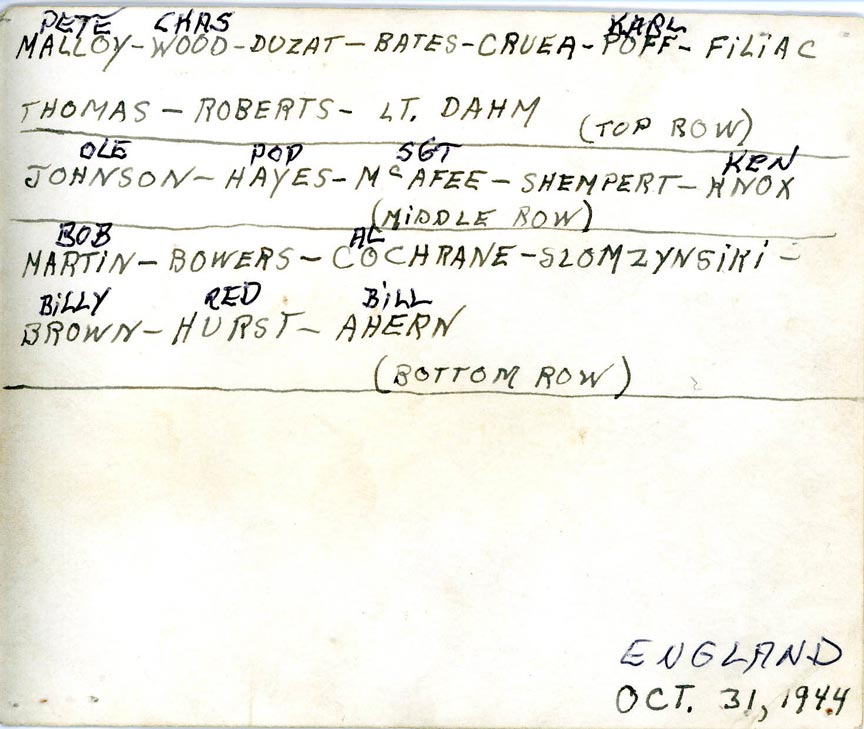 PETE CHAS KARL
MALLOY-WOOD-DUZAT-BATES-CRUEA-POFF-FILIAC
THOMAS-ROBERTS-LT. DAHM
(TOP ROW)
OLE POP SGT KEN
JOHNSON-HAYES-McAFEE-SHEMPERT-KNOX
(MIDDLE ROW)
BOB AL
MARTIN-BOWERS-COCHRANE-SLOMZYNSIKI-
BILLY RED BILL
BROWN-HURST-AHERN
(BOTTOM ROW)
ENGLAND
OCT. 31, 1944